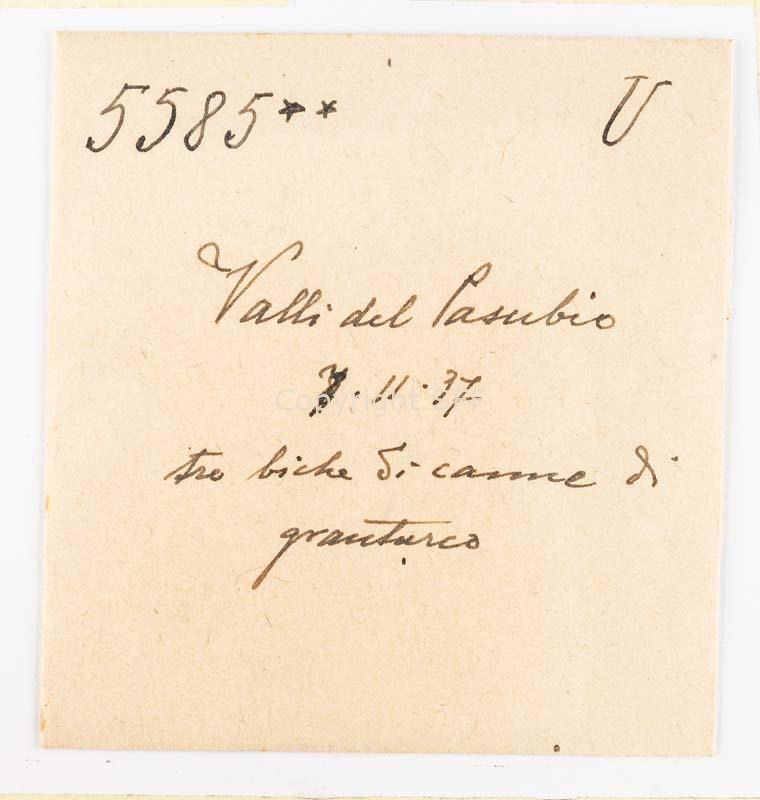 5585** U
Valli del Pasubio
7.11.37
tre biche di canne di
granturco
Copyright